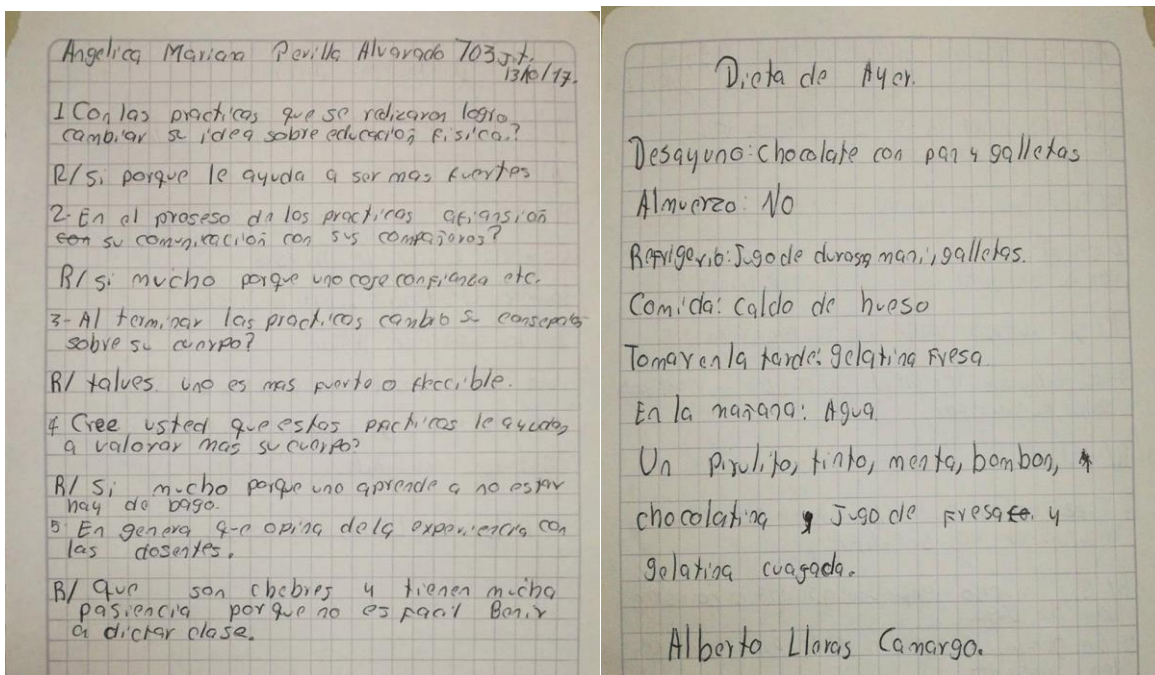 Angelica Mariana Pevilla Alvarado 703 J.t.
13/10/17.
1 Con las practicas que se realizaron logro
cambiar su idea sobre educación fisica.?
R/ si porque le ayuda a ser mas fuertes
2- En el proseso de los practicas afiansion
su comunicación con sus compañeros?
R/ si mucho porque uno coje confianza etc.
3- Al terminar las practicas cambio su consepto
sobre su cuerpo?
R/ talves. uno es mas fuerte o fleccible.
4 Cree usted que estas practicas le ayudan
a valorar mas su cuerpo?
R/ Si mucho porque uno aprende a no estar
hay de bago.
5 En genera que opina de la experiencia con
las dosentes.
R/ Que son chebres y tienen mucha
pasiencia porque no es facil Benir
a dictar clase.
Dieta de Ayer.
Desayuno: chocolate con pan y galletas
Almuerzo: No
Refrigerio: Jugo de durasn mani, galletas.
Comida: caldo de hueso
Tomar en la tarde: gelatina Fresa
En la mañana: Agua
Un pirulito, tinto, menta, bombon,
chocolatina y Jugo de Fresa y
gelatina cuagada.
Alberto Lleras Camargo.